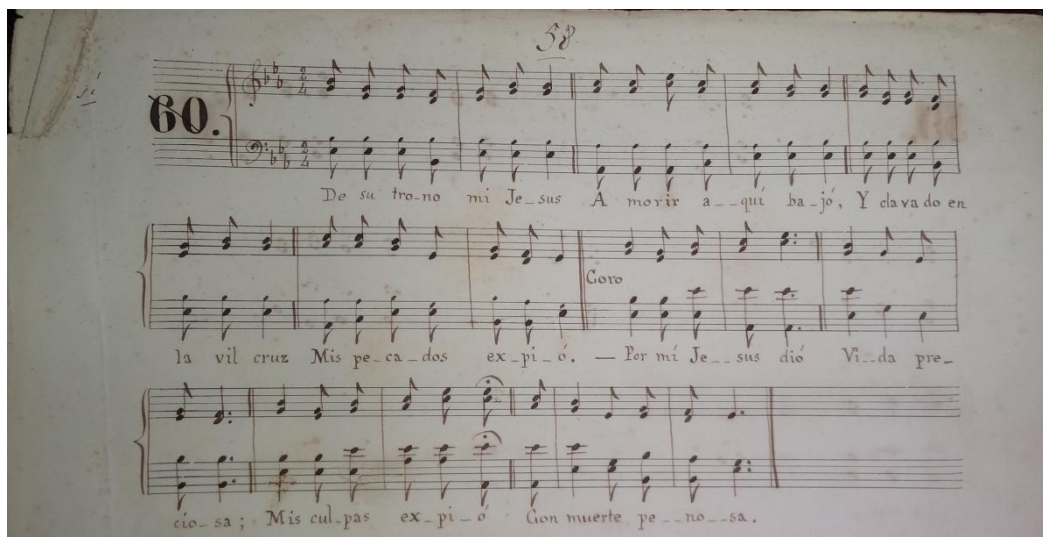 58
60.
De su tro-no mi Je-sus A morir a--quí ba-jó, Y clavado en
Coro
la vil cruz Mis pe-ca-dos ex-pi-ó. — Por mí Je--sus dió Vi--da pre-
cio-sa; Mis cul-pas ex-pi-ó Con muerte pe--no--sa.